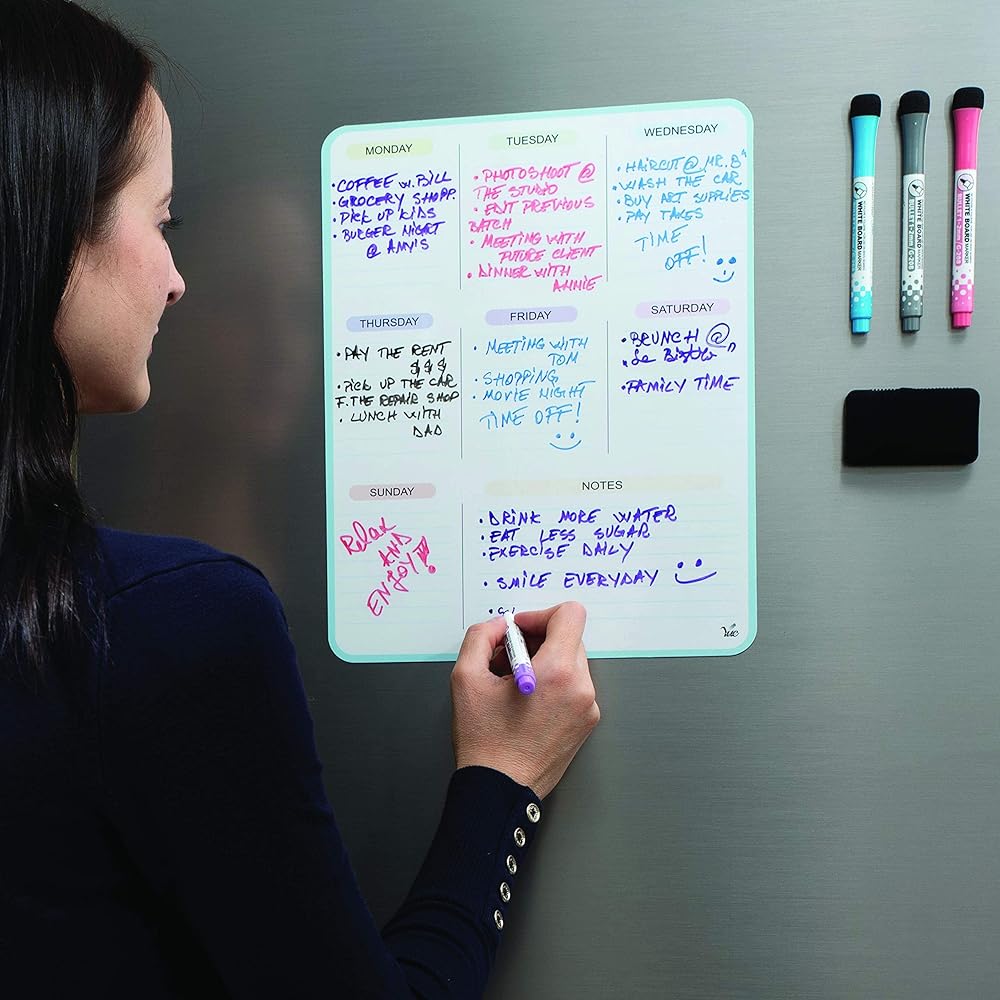 MONDAY
• COFFEE w. BILL
• GROCERY SHOPP.
• PICK UP KIDS
• BURGER NIGHT
@ AMY'S
TUESDAY
• PHOTOSHOOT @
THE STUDIO
• EDIT PREVIOUS
BATCH
• MEETING WITH
FUTURE CLIENT
• DINNER WITH
ANNIE
WEDNESDAY
• HAIRCUT @ MR. B"
• WASH THE CAR
• BUY ART SUPPLIES
• PAY TAXES
TIME
OFF!
THURSDAY
• PAY THE RENT
$$$
• PICK UP THE CAR
F. THE REPAIR SHOP
• LUNCH WITH
DAD
FRIDAY
• MEETING WITH
TOM
• SHOPPING
• MOVIE NIGHT
TIME OFF!
SATURDAY
• BRUNCH @
"Le Bistro"
• FAMILY TIME
SUNDAY
Relax
AND
ENJOY!
NOTES
• DRINK MORE WATER
• EAT LESS SUGAR
• EXERCISE DAILY
• SMILE EVERYDAY
WHITE BOARD MARKER
WHITE BOARD MARKER
WHITE BOARD MARKER